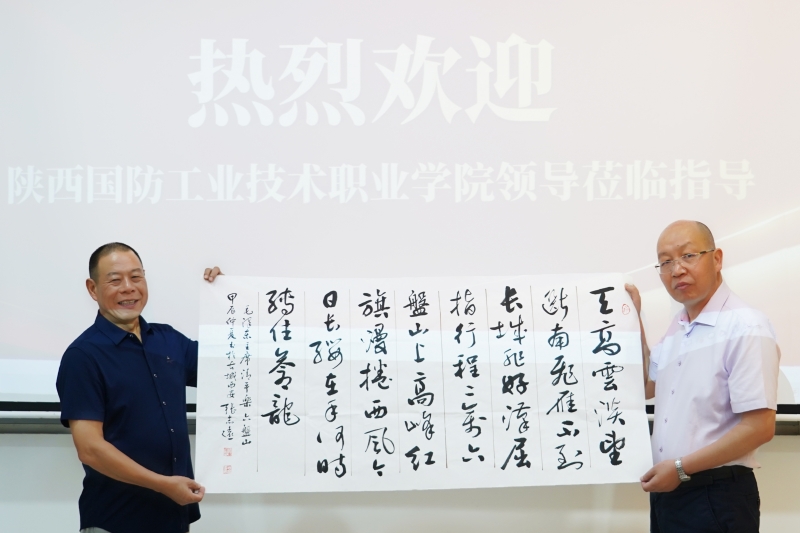 热烈欢迎
陕西国防工业技术职业学院领导莅临指导
天高雲淡望
断南飛雁不到
长城非好漢屈
指行程二萬六
盤山上高峰红
旗漫捲西風今
日长缨在手何時
缚住蒼龍
毛泽东主席清平樂六盤山
甲辰仲夏于古城西安